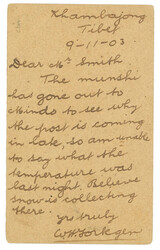 Khambajong
Tibet
9-11-03
Dear Mr Smith
The munshi
has gone out to
to see why
the post is coming
in late, so am unable
to say what the
temperature was
last night. Believe
snow is collecting
there.
yrs truly